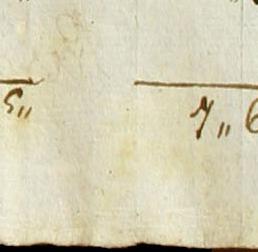 5„ 7„ 6